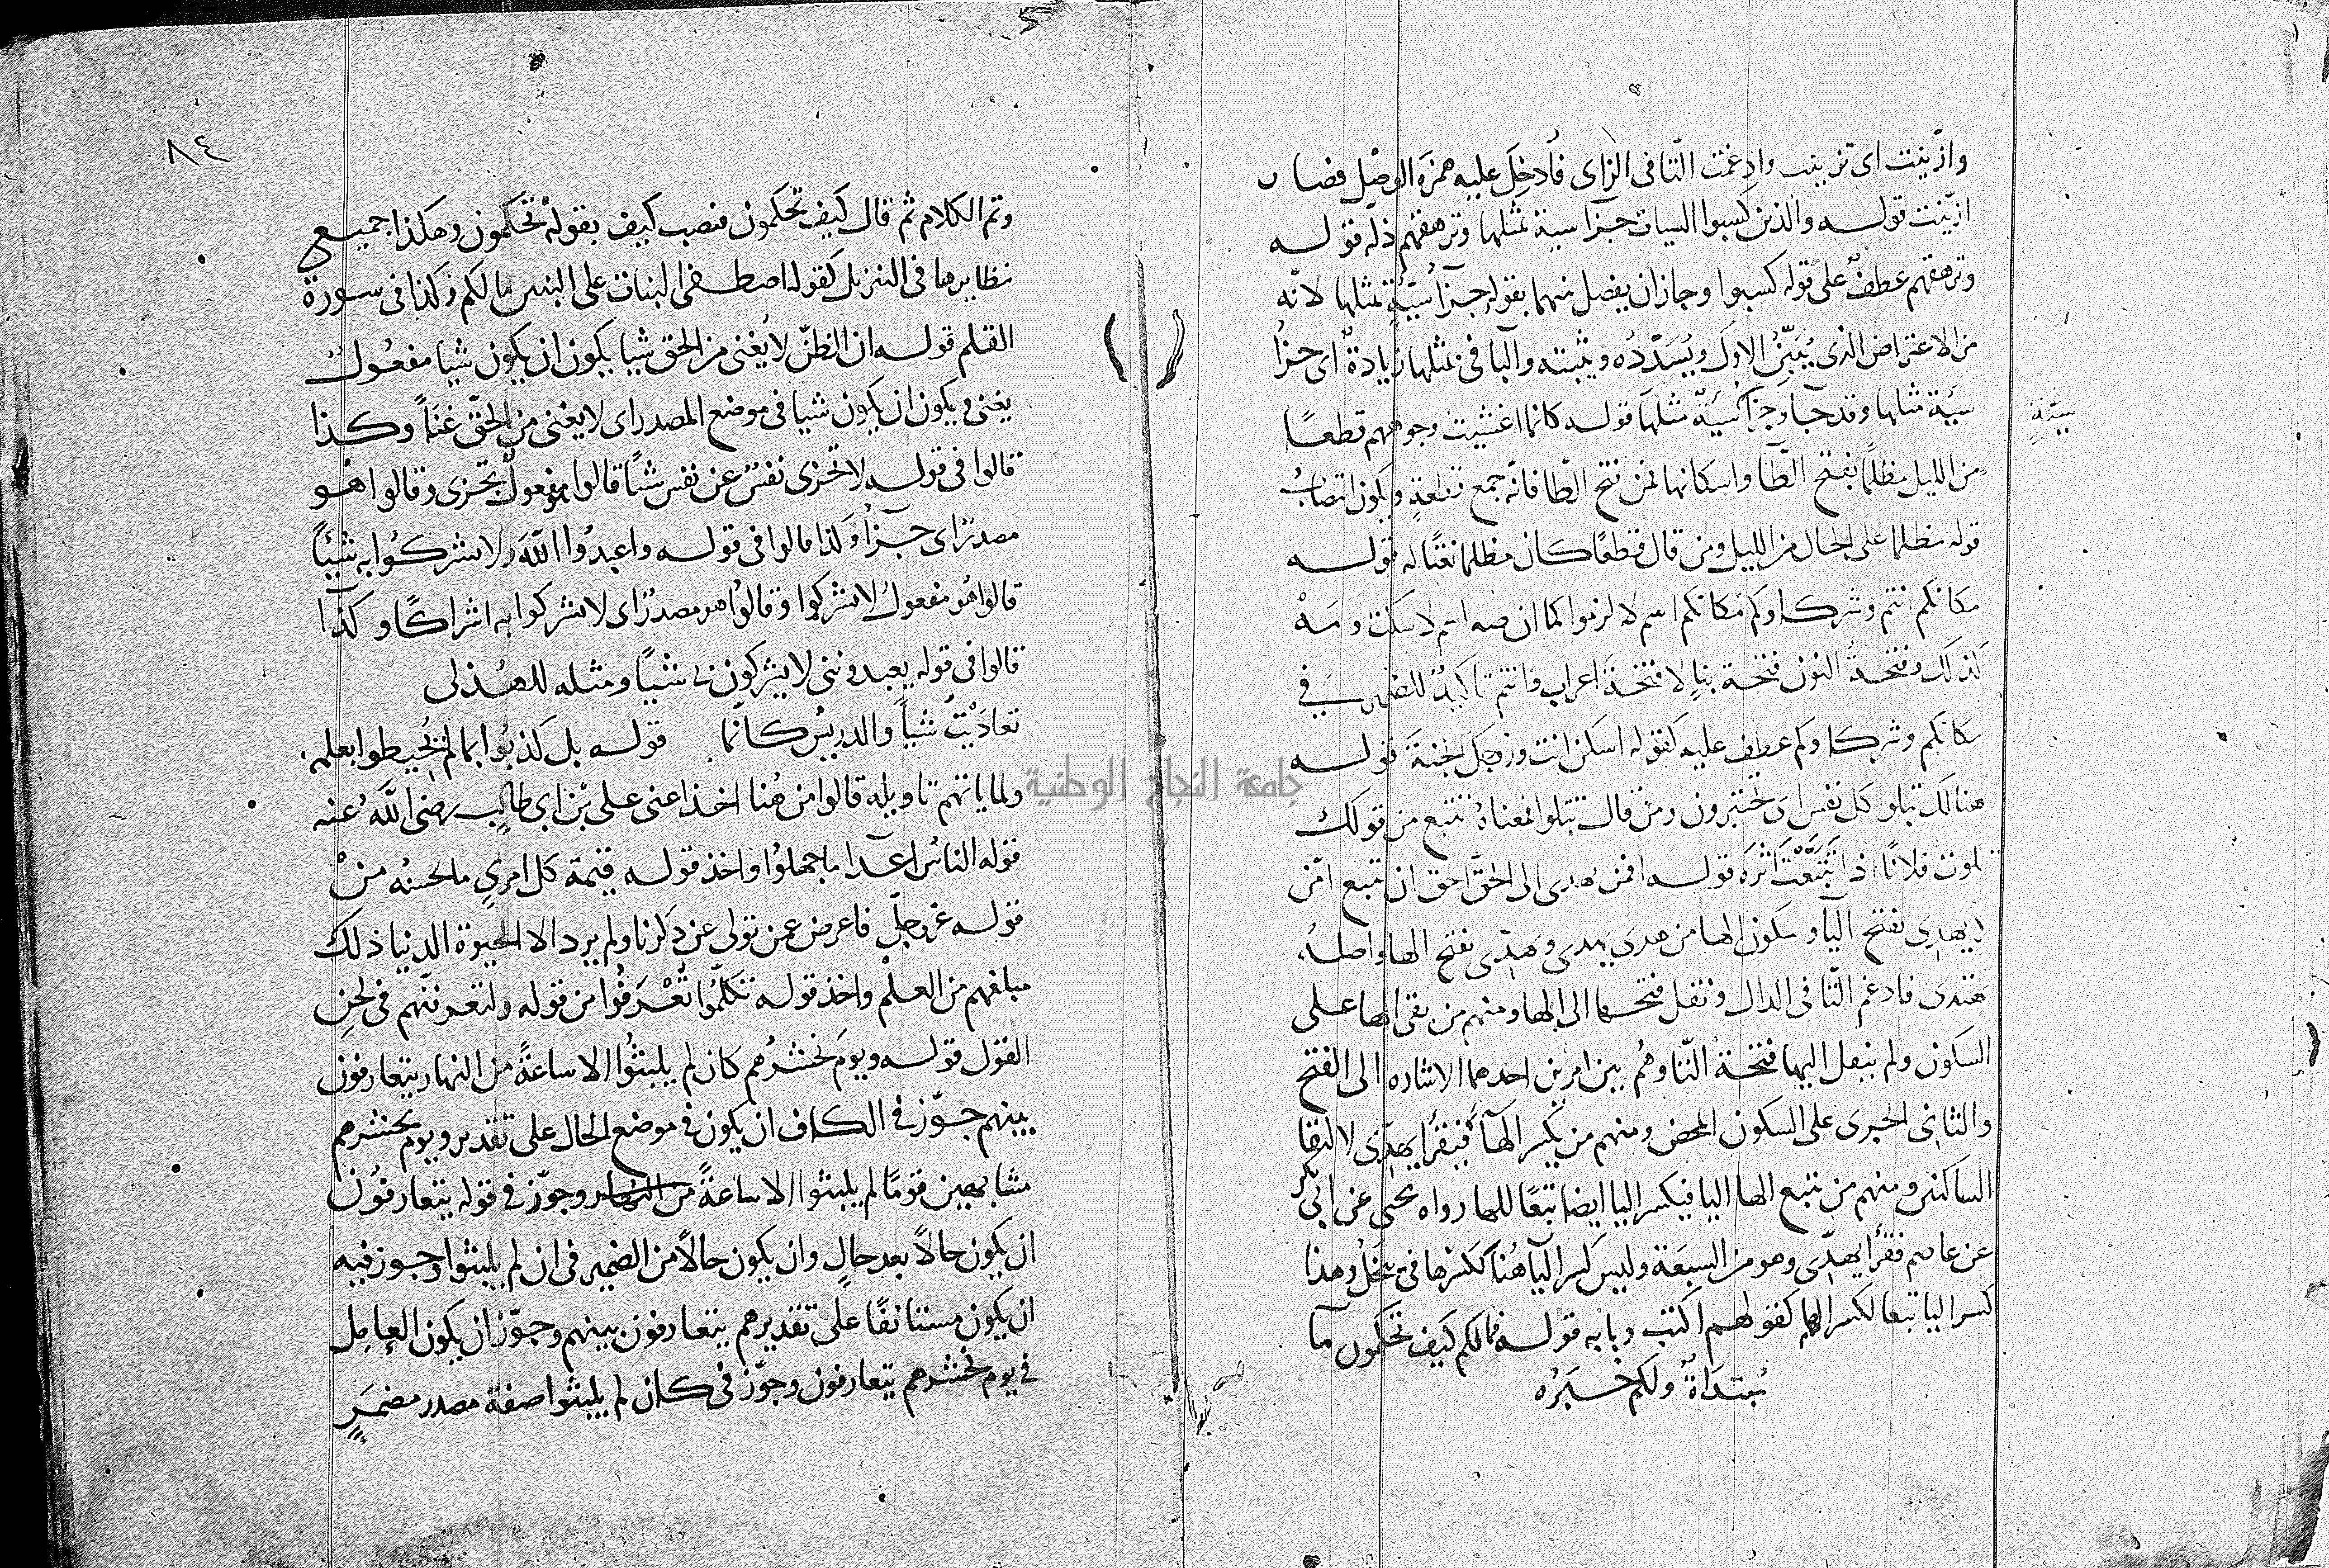 وازّينت اى تزينت وادغمت التّا فى الزاى فأدخِلَ عليه همزة الوصْل فصار
ازّيّنت قوله والذين كسبوا السيات جزآ سية بمثلها وترهقهم ذلّة قوله
وترهقهم عطفٌ على قوله كسبوا وجاز ان يفصل بينهما بقوله جزآ سيّئةٍ بمثلها لانّه
من الاعتراض الذى يُبيّنُ الاول ويُسَدّدُه ويثبته والبا فى بمثلها زيادةٌ اى جزآُ
سيّئة مثلها وقد جآ وجزآ سيّئة سيّئةٌ مثلها قوله كانما اغشيت وجوههم قطعًا
سيّئةٍ
من الليل مظلمًا بفتح الطّا واسكانها فمن فتح الطّا فانّه جمع قطعةٍ ويكون انتصابُ
قوله مظلما على الحال من الليل ومن قال قطعًا كان مظلما نعتًا له قوله
مكانكم انتم وشركاوكم مكانكم اسم لالزموا كما ان صه اسم لاسكت ومَهْ
كذلك وفتحةُ النون فتحة بناءٍ لا فتحةَ اعراب وانتم تاكيدٌ للضمير فى
مكانكم وشركاوكم عطف عليه كقوله اسكن انت وزوجك الجنة قوله
هنالك تبلوا كل نفس اى تختبرون ومن قال تتلوا فمعناهُ تتبع من قولك
تلوت فلانًا اذا تَتَبَّعْتَ اثَرَه قوله افمن يهدى الى الحقّ احق ان تتبع امّن
لا يهدى بفتح اليآ وسكون الها من هدى يهدى ويَهَدّى بفتح الها واصله
يهتدى فادغم التّا فى الدال ونقل فتحها الى الها ومنهم من بقى الها على
السكون ولم ينقل اليها فتحة التّا وهُم بين امرين احدهما الاشاره الى الفتح
والثانى الجرى على السكون المحض ومنهم من يكسر الهآ فيقرأ يهِدّى لالتقا
الساكنين ومنهم من تتبع الها اليا فيكسر اليا ايضا تبعًا للها رواه يحيى عن ابى بكر
عن عاصم فقرأ يِهِدّى وهو من السبعة وليس كسر اليآ هُنا ككسرها فى ييجل وهذا
كسر اليا تبعا لكسر الها كقولهم اكتب وبابه قوله فما لكم كيف تحكمون مآ
مُبتدَاةٌ ولكم خبرُه
٨٤
وتم الكلام ثم قال كيف تحكمون فنصب كيف بقوله تحكمون وهكذا جميع
نظايرها فى التنزيل كقوله اصطفى البنات على البنين ما لكم وكذا فى سورة
القلم قوله ان الظنّ لا يُغنى من الحق شيا يكون ان يكون شيا مفعولُ
يغنى ويكون ان يكون شيا فى موضع المصدر اى لا يغنى من الحقّ غنَاً وكذا
قالوا فى قوله لا تجزى نفسٌ عن نفس شيًا قالوا مفعولُ تجزى وقالوا هُو
مصدرٌ اى جزآً وكذا قالوا فى قوله واعبدُوا اللهَ ولا تشركُوا به شيئًا
قالوا هُو مفعولُ لا تشركوا وقالوُا هو مصدرٌ اى لا تشركوا به اشراكًا وكذا
قالوا فى قوله يعبدوننى لا يشركون بى شيًا ومثله للهُذلى
تعادَيْتُ شيًا والدريسُ كانّما قوله بل كذبُوا بما لم يُحيطوا بعلمه
ولما ياتهم تاويله قالوا من هُنا اخذ اعنى على بْن ابى طالبٍ رضى اللهُ عنه
قوله الناسُ اعدآ ما جهلوُا واخذ قوله قيمة كل امرىٍ ما يحسنُه منْ
قوله عزوجلّ فاعرض عمن تولى عن ذكرنا ولم يرد الا الحيوة الدنيا ذلك
مبلغهم من العلم واخذ قوله تكلّمُوا تُعْرَفُوا من قوله ولتعرفنّهم فى لحنِ
القول قوله ويومَ نحشرُهم كان لم يلبثُوا الا ساعةً من النهار يتعارفون
بينهم جوّز فى الكاف ان يكون فى موضع الحال على تقدير ويوم نحشرهم
مشابهين قومًا لم يلبثوا الا ساعةً من النهار وجوّز فى قوله يتعارفُون
ان يكون حالاً بعد حالٍ وان يكون حالاً من الضمير فى ان لم يلبثوا وجوز فيه
ان يكون مستانفًا على تقدير هم يتعارفون بينهم وجوّز ان يكون العامِل
فى يوم نحشرهم يتعارفون وجوّز فى كان لم يلبثوا صفة مصدرٍ مضمَرٍ
جامعة النجاح الوطنية